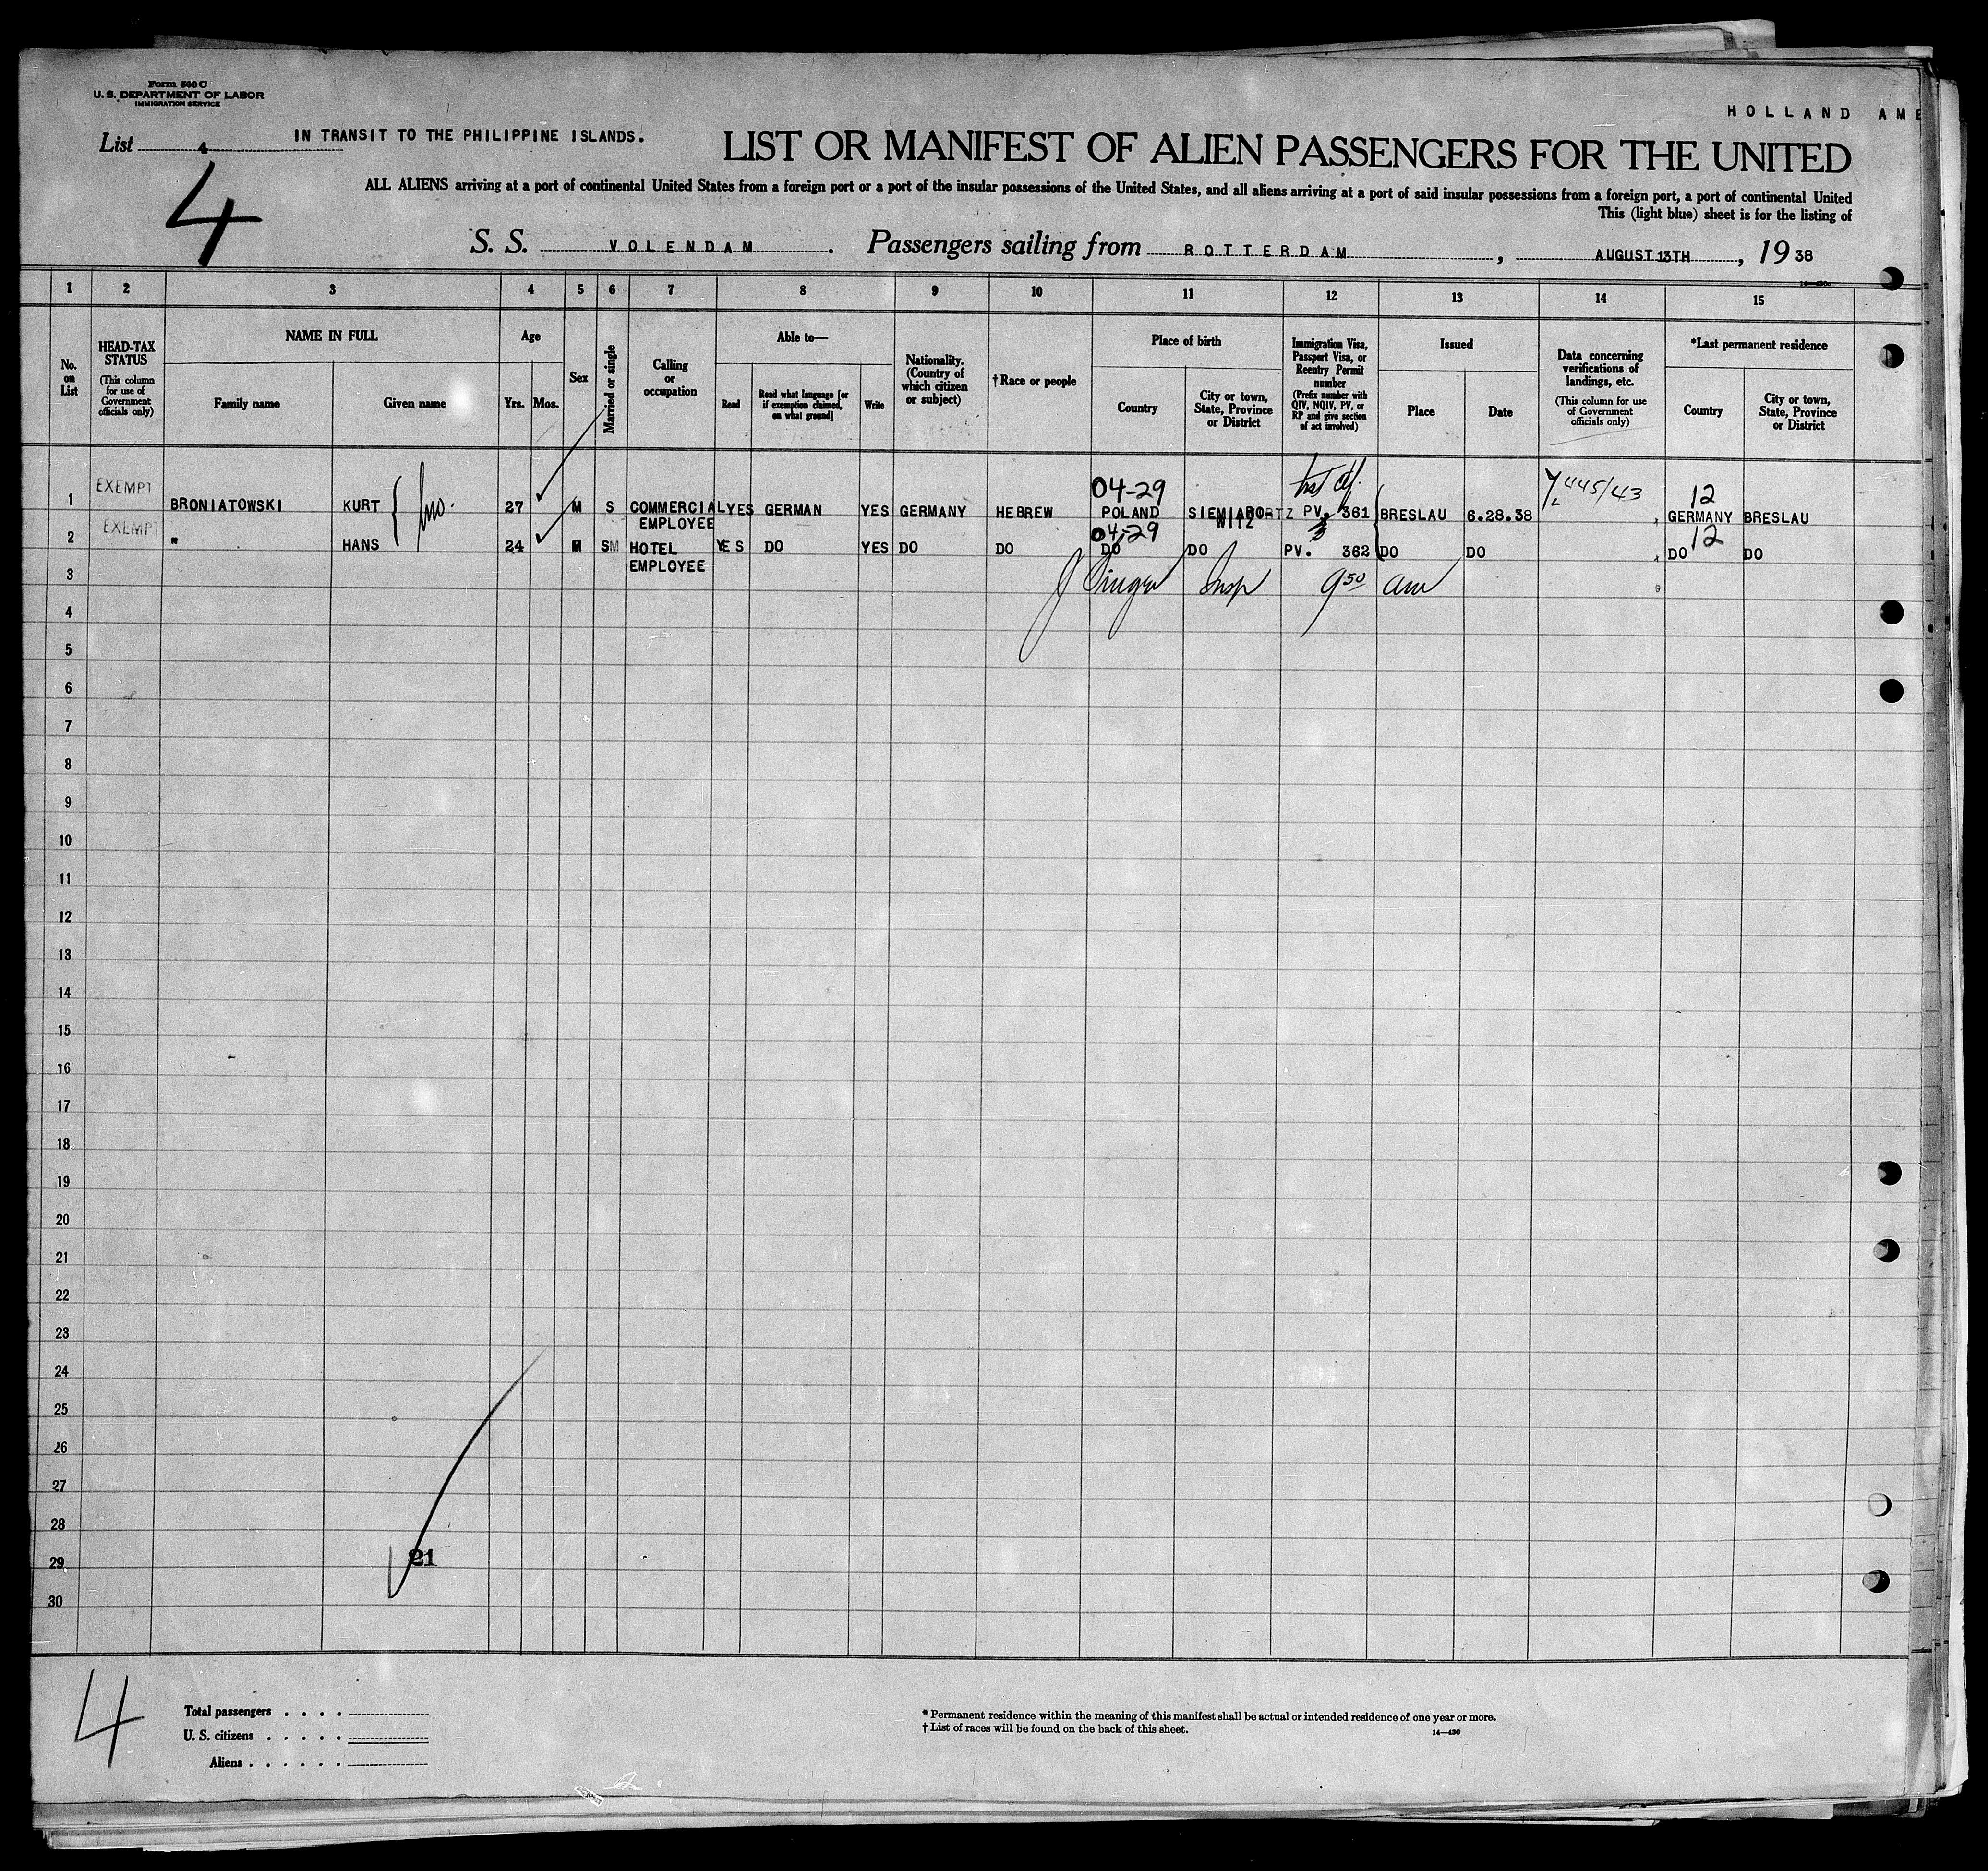 Form 500 C
U. S. DEPARTMENT OF LABOR
IMMIGRATION SERVICE
HOLLAND AME
List 4
IN TRANSIT TO THE PHILIPPINE ISLANDS.
LIST OR MANIFEST OF ALIEN PASSENGERS FOR THE UNITED
4
ALL ALIENS arriving at a port of continental United States from a foreign port or a port of the insular possessions of the United States, and all aliens arriving at a port of said insular possessions from a foreign port, a port of continental United
This (light blue) sheet is for the listing of
S. S. VOLENDAM. Passengers sailing from ROTTERDAM, AUGUST 13TH, 19 38
1 2 3 4 5 6 7 8 9 10 11 12 13 14 15
No. on List
HEAD-TAX STATUS
(This column for use of Government officials only)
NAME IN FULL
Family name
Given name
Age
Yrs.
Mos.
Sex
Married or single
Calling or occupation
Able to—
Read
Read what language [or if exemption claimed, on what ground]
Write
Nationality. (Country of which citizen or subject)
† Race or people
Place of birth
Country
City or town, State, Province or District
Immigration Visa, Passport Visa, or Reentry Permit number
(Prefix number with QIV, NQIV, PV, or RP and give section of act involved)
Issued
Place
Date
Data concerning verifications of landings, etc.
(This column for use of Government officials only)
*Last permanent residence
Country
City or town, State, Province or District
EXEMPT 04-29 445/43 12
1 BRONIATOWSKI KURT 27 M S COMMERCIAL YES GERMAN YES GERMANY HEBREW POLAND PV. 361 BRESLAU 6.28.38 GERMANY BRESLAU
EMPLOYEE WITZ
EXEMPT 04-29 3 12
2 " HANS 24 M SM HOTEL YES DO YES DO DO DO DO PV. 362 DO DO DO DO
EMPLOYEE
3 Insp 9 50 am
4
5
6
7
8
9
10
11
12
13
14
15
16
17
18
19
20
21
22
23
24
25
26
27
28
29 21
30
4
Total passengers . . . .
U. S. citizens . . . . .
Aliens . . . . . .
* Permanent residence within the meaning of this manifest shall be actual or intended residence of one year or more.
† List of races will be found on the back of this sheet.
14—430